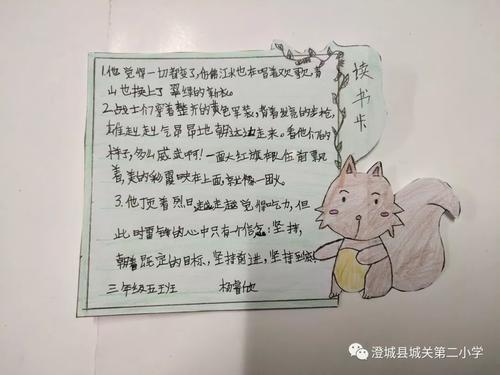 1.他觉得一切都变了,仿佛江水也在唱着欢歌,青
山也换上了翠绿的新衣。
2.战士们穿着整齐的黄色军装,背着发亮的步枪,
雄赳赳气昂昂地朝这边走来。看他们的
样子,多么威武啊!一面大红旗飘在前
着,美的彩霞映在上面,就像一团火。
3.他顶着烈日越走越觉得吃力,但
此时雷锋的心中只有个信念:坚持,
朝着既定的目标,坚持前进,坚持到底
三年级五班 杨
读书卡
澄城县城关第二小学